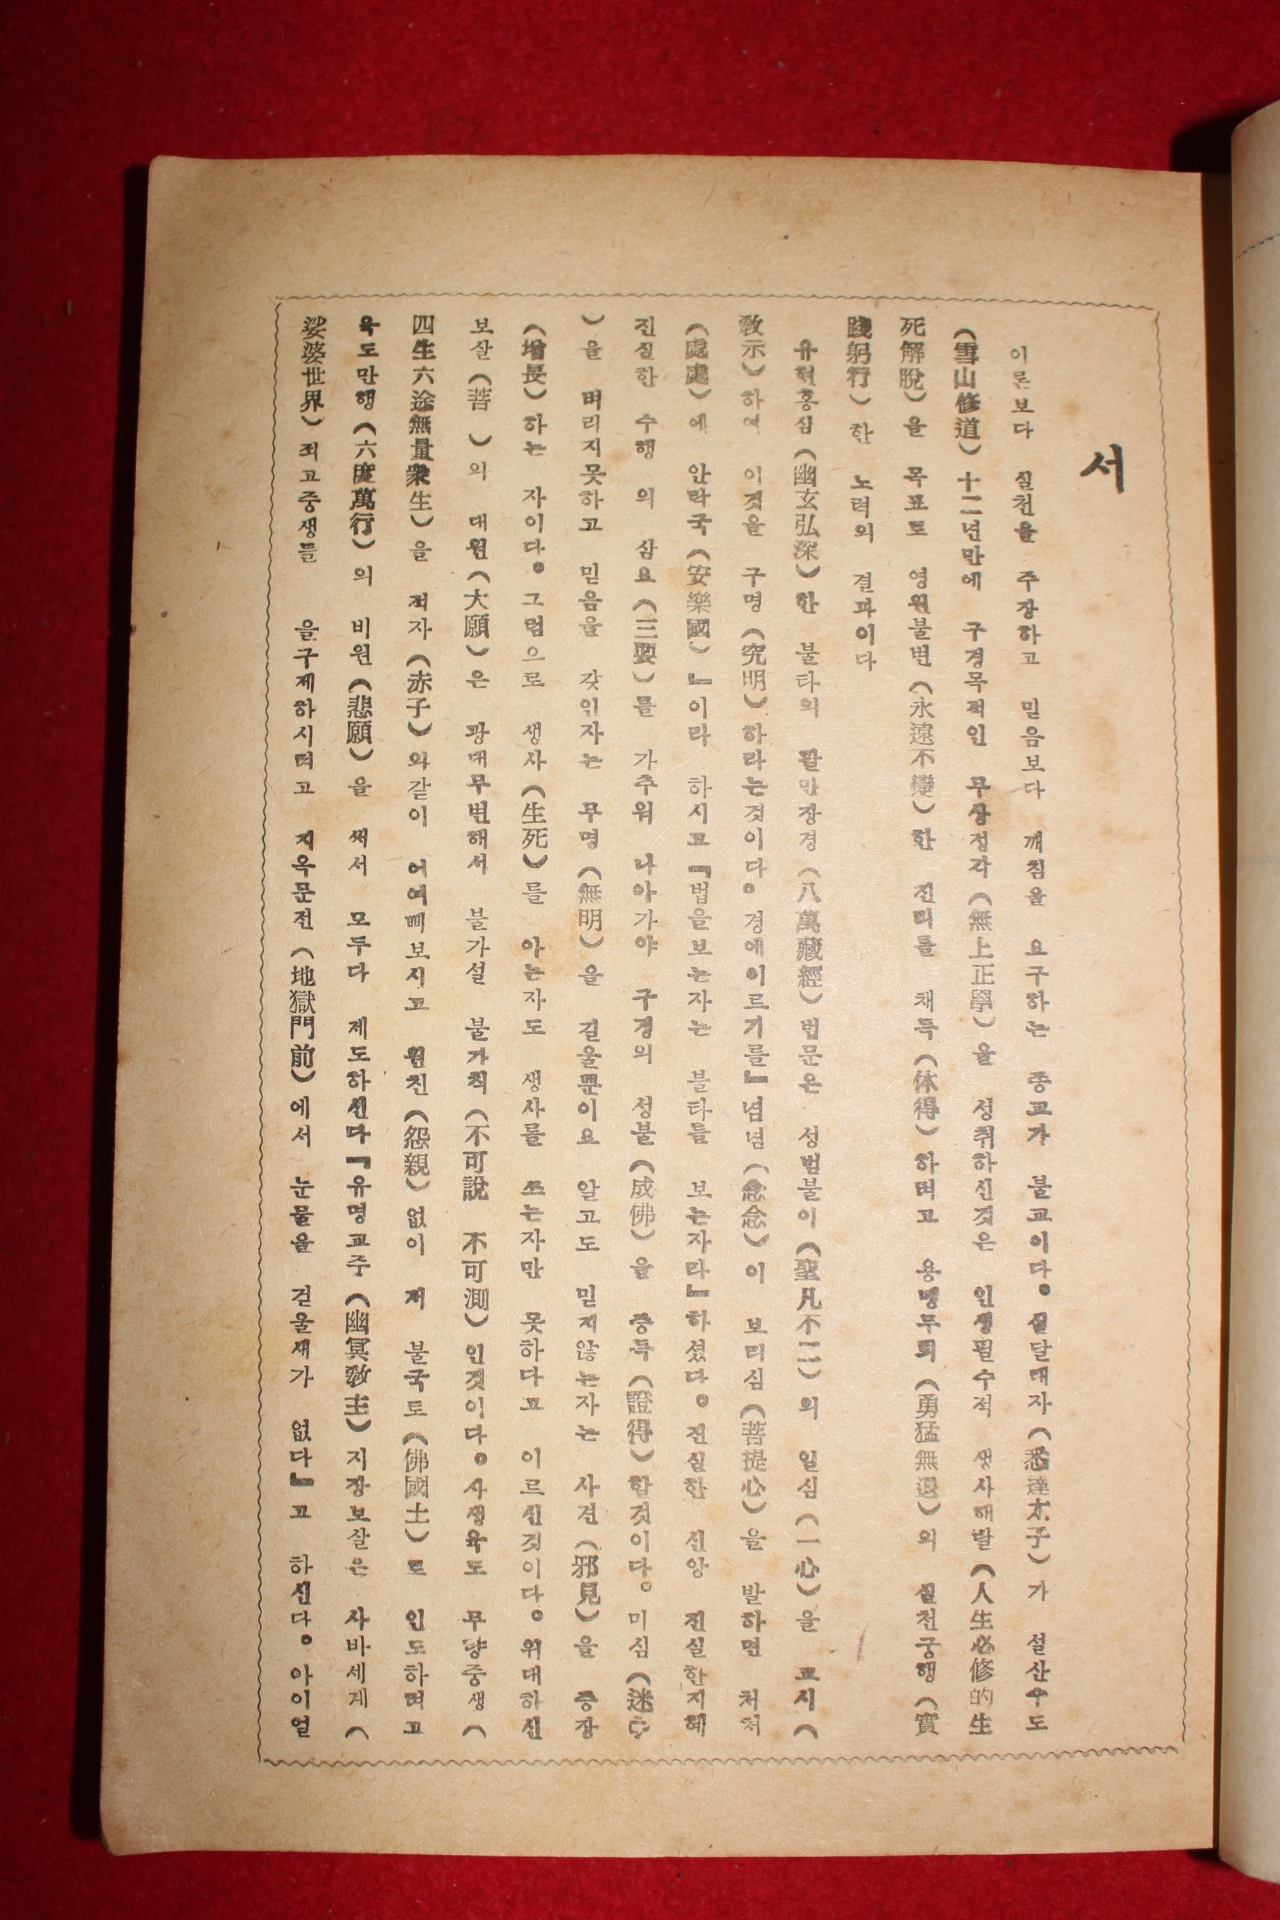 서
이론보다 실천을 주장하고 믿음보다 깨침을 요구하는 종교가 불교이다。실달태자(悉達太子)가 설산수도
(雪山修道)十二년만에 구경목적인 무상정각(無上正學)을 성취하신것은 인생필수적 생사해탈(人生必修的生
死解脫)을 목표로 영원불변(永遠不變)한 진리를 채득(体得)하며고 용맹무퇴(勇猛無退)의 실천궁행(實
踐躬行)한 노력의 결과이다
유현홍심(幽玄弘深)한 불타의 팔만장경(八萬藏經)법문은 성범불이(聖凡不二)의 일심(一心)을 교시(
敎示)하여 이것을 구명(究明)하라는것이다。경에이르기를』념념(念念)이 보리심(菩提心)을 발하면 처처
(處處)에 안락국(安樂國)』이라 하시고『법을보는자는 불타를 보는자라』하셨다。진실한 신앙 진실한지혜
진실한 수행 의 삼요(三要)를 가추워 나아가야 구경의 성불(成佛)을 증득(證得)할것이다。미심(迷心
)을 버리지못하고 믿음을 갖인자는 무명(無明)을 길울뿐이요 알고도 믿지않는자는 사견(邪見)을 증장
(增長)하는 자이다。그럼으로 생사(生死)를 아는자도 생사를 쓰는자만 못하다고 이르신것이다。위대하신
보살(菩 )의 대원(大願)은 광대무변해서 불가설 불가칙(不可說 不可測)인것이다。사생육도 무량중생(
四生六途無量衆生)을 적자(赤子)와같이 어여삐보시고 원친(怨親)없이 저 불국토(佛國土)로 인도하며고
육도만행(六度萬行)의 비원(悲願)을 써서 모두다 제도하신다『유명교주(幽冥敎主)지장보살은 사바세계(
娑婆世界)죄고중생들 을구제하시려고 지옥문전(地獄門前)에서 눈물을 걷울새가 없다』고 하신다。아이얼